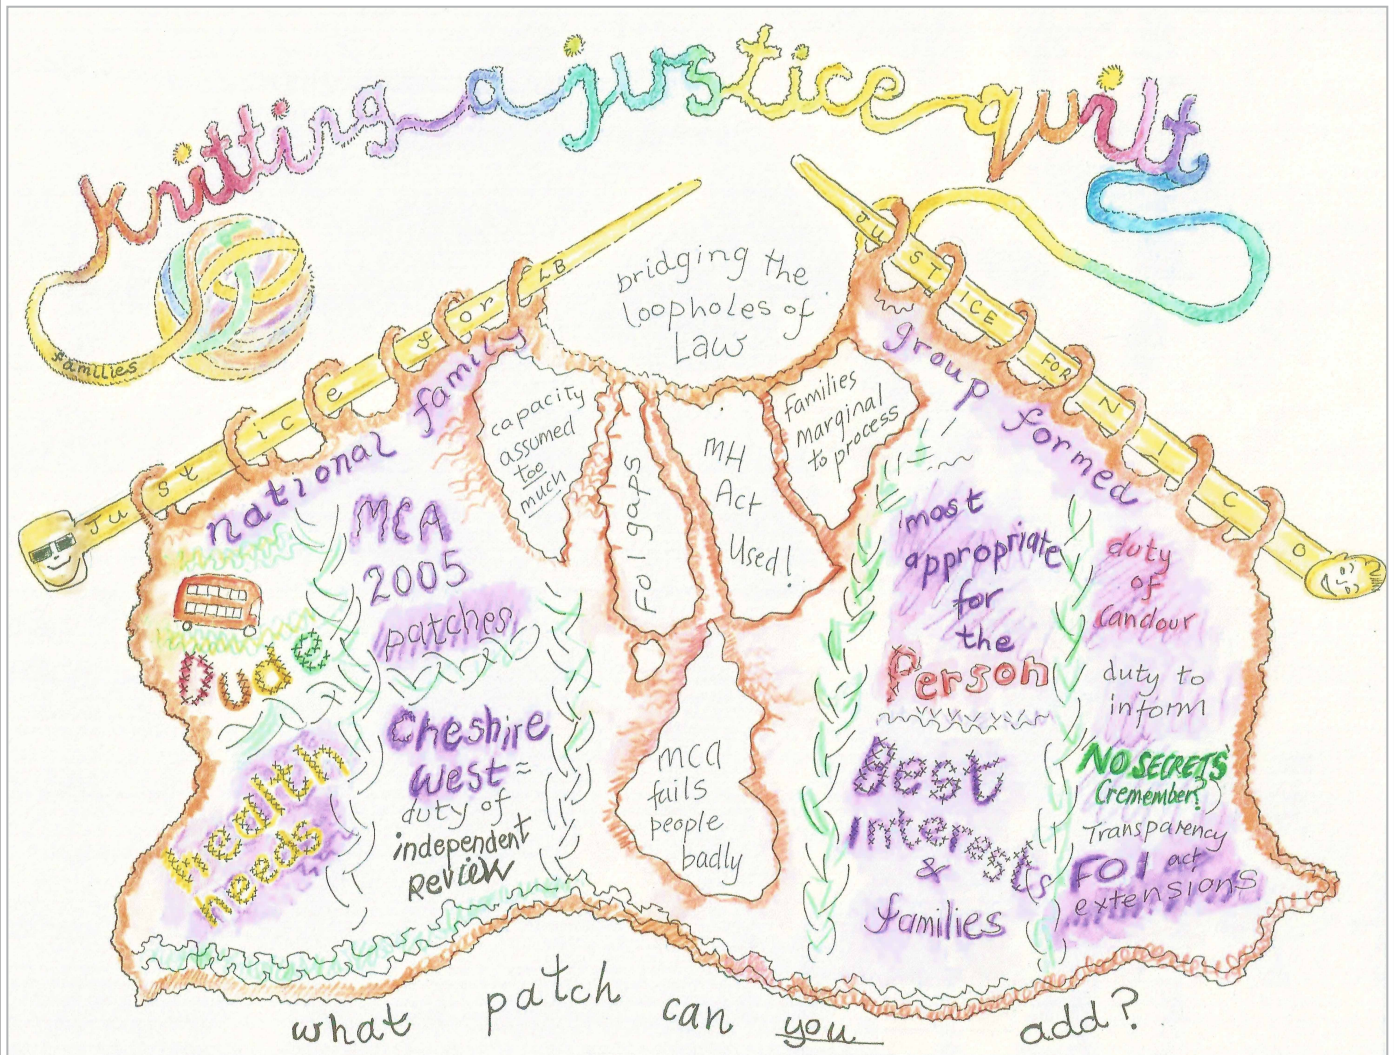 Knitting a justice quilt
families
Justice for LB
JUSTICE FOR NICO
bridging the
loopholes of
Law
national family
group formed
capacity
assumed
too
much
FOI gaps
MH
Act
Used!
families
marginal
to process
MCA
2005
patches
Dude
Cheshire
West =
duty of
independent
Review
Health
needs
mca
fails
people
badly
most
appropriate
for
the
Person
Best
interests
&
families
duty
of
candour
duty to
inform
NO SECRETS
(remember?)
Transparency
FOI act
extensions
what patch can you add?